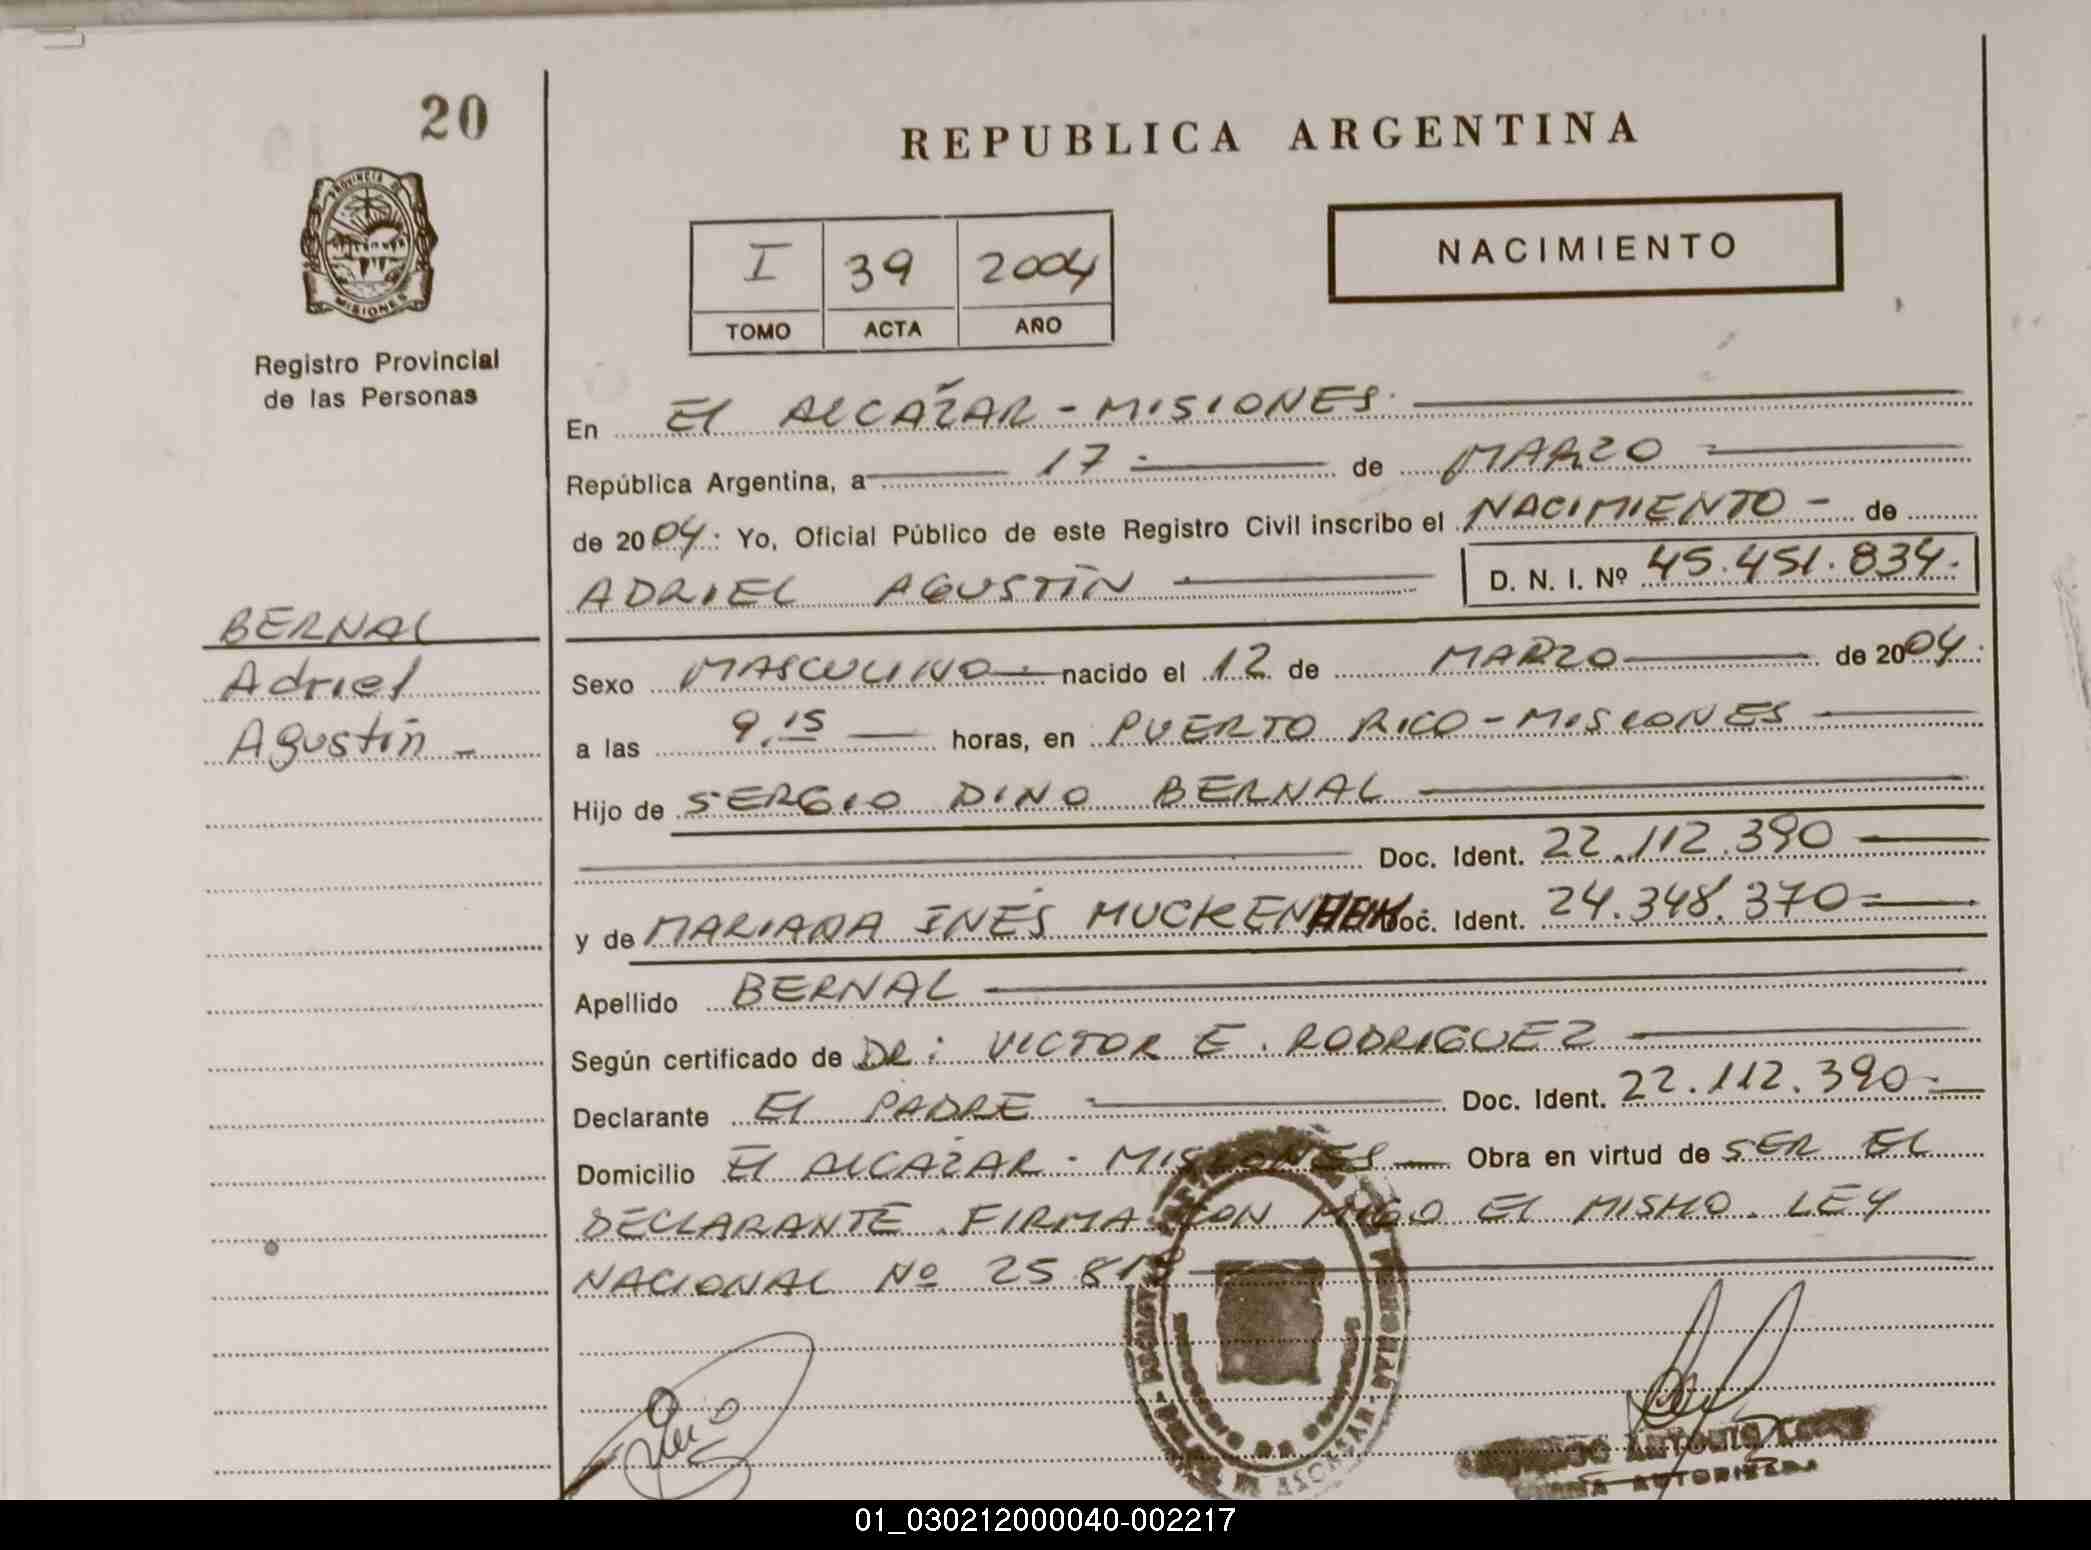 20
REPUBLICA ARGENTINA
PROVINCIA DE
MISIONES
Registro Provincial
de las Personas
I 39 2004
TOMO ACTA AÑO
NACIMIENTO
En El ALCAZAR - MISIONES.
República Argentina, a 17 de MARZO
de 2004: Yo, Oficial Público de este Registro Civil inscribo el NACIMIENTO - de
ADRIEL AGUSTÍN D. N. I. Nº 45.451.834.
BERNAL
Adriel
Agustín -
Sexo MASCULINO nacido el 12 de MARZO de 2004.
a las 9,15 horas, en PUERTO RICO - MISIONES
Hijo de SERGIO DINO BERNAL
Doc. Ident. 22.112.390
y de MARIANA INÉS Doc. Ident. 24.348.370
Apellido BERNAL
Según certificado de Dr: VICTOR E. RODRIGUEZ
Declarante El PADRE Doc. Ident. 22.112.390
Domicilio El ALCAZAR - MISIONES Obra en virtud de SER EL
DECLARANTE. FIRMA CON MIGO El MISMO. LEY
NACIONAL Nº
ANTONIO
AUTORIZADA
01_030212000040-002217